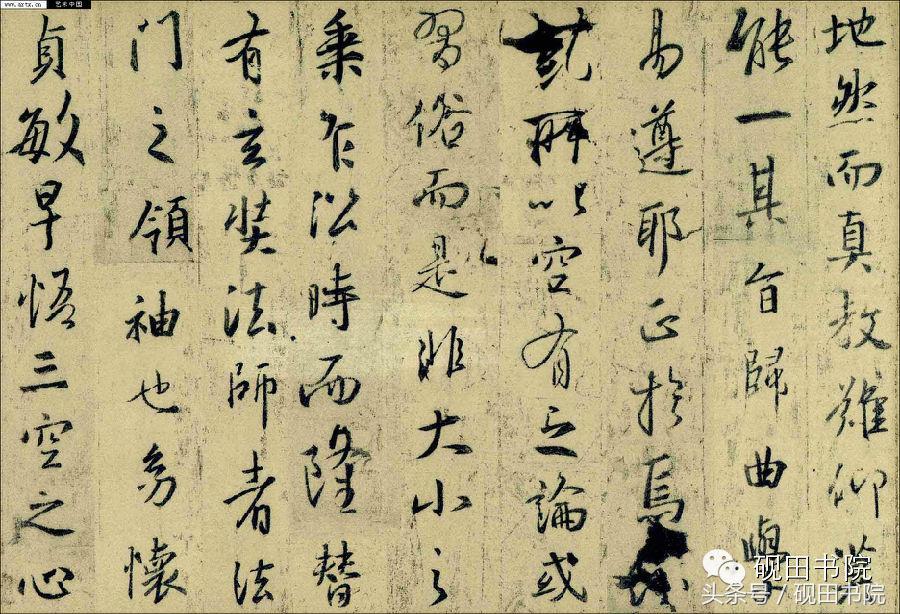 www.artx.cn 艺术中国
地然而真教難仰
能一其旨歸曲學
易遵耶正於焉
糺所以空有之論或
習俗而是非大小之
乘乍沿時而隆替
有玄奘法師者法
門之領袖也㓜懷
貞敏早悟三空之心
砚田书院
头条号／砚田书院